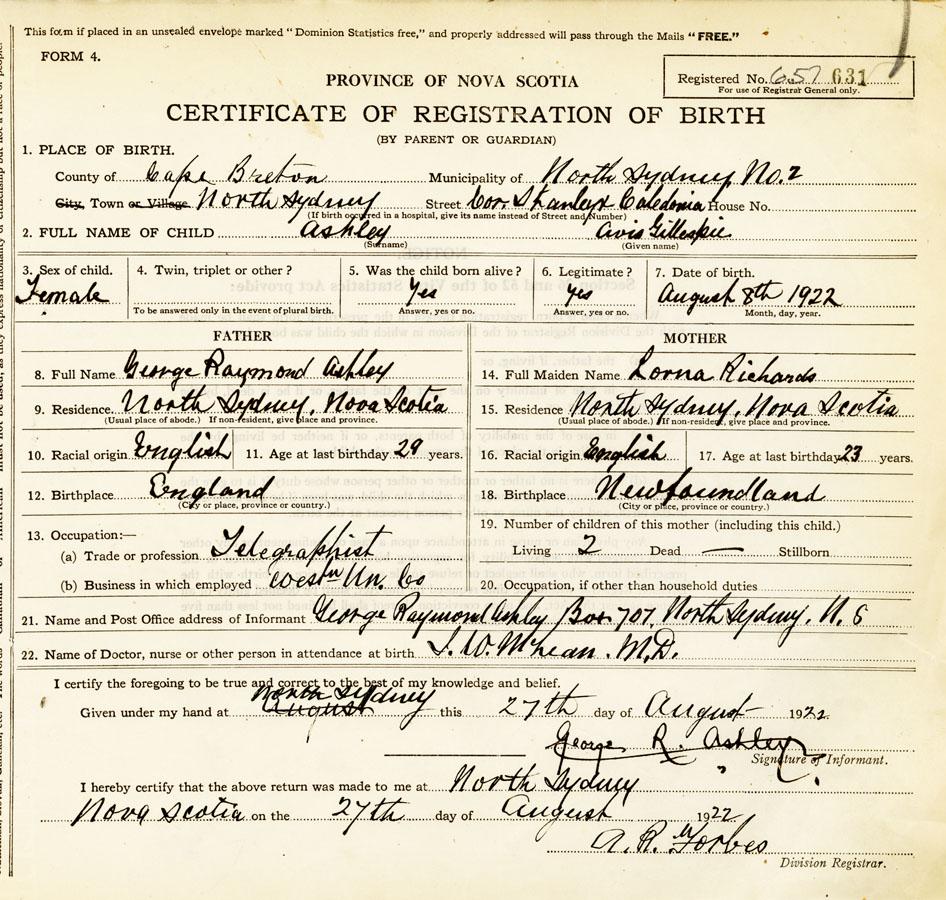 This form if placed in an unsealed envelope marked "Dominion Statistics free," and properly addressed will pass through the Mails "FREE."
FORM 4.
Registered No. 657 631
For use of Registrar General only.
PROVINCE OF NOVA SCOTIA
CERTIFICATE OF REGISTRATION OF BIRTH
(BY PARENT OR GUARDIAN)
1. PLACE OF BIRTH.
County of Cape Breton Municipality of North Sydney No. 2
City, Town or Village North Sydney Street Cor Stanley & Caledonia House No.
(If birth occurred in a hospital, give its name instead of Street and Number)
2. FULL NAME OF CHILD Ashley Avis Gillespie
(Surname) (Given name)
3. Sex of child. 4. Twin, triplet or other? 5. Was the child born alive? 6. Legitimate? 7. Date of birth.
Female Yes Yes August 8th 1922
To be answered only in the event of plural birth. Answer, yes or no. Answer, yes or no. Month, day, year.
FATHER MOTHER
8. Full Name George Raymond Ashley 14. Full Maiden Name Lorna Richards
9. Residence North Sydney, Nova Scotia 15. Residence North Sydney, Nova Scotia
(Usual place of abode.) If non-resident, give place and province. (Usual place of abode.) If non-resident, give place and province.
10. Racial origin English 11. Age at last birthday 29 years. 16. Racial origin English 17. Age at last birthday 23 years.
12. Birthplace England 18. Birthplace Newfoundland
(City or place, province or country.) (City or place, province or country.)
13. Occupation:— 19. Number of children of this mother (including this child.)
(a) Trade or profession Telegraphist Living 2 Dead — Stillborn
(b) Business in which employed Westn Un. Co 20. Occupation, if other than household duties
21. Name and Post Office address of Informant George Raymond Ashley Box 707, North Sydney, N. S
22. Name of Doctor, nurse or other person in attendance at birth McLean. M.D.
I certify the foregoing to be true and correct to the best of my knowledge and belief.
North Sydney
Given under my hand at August this 27th day of August 1922.
George R. Ashley
Signature of Informant.
I hereby certify that the above return was made to me at North Sydney
Nova Scotia on the 27th day of August 1922
A. R. Forbes
Division Registrar.